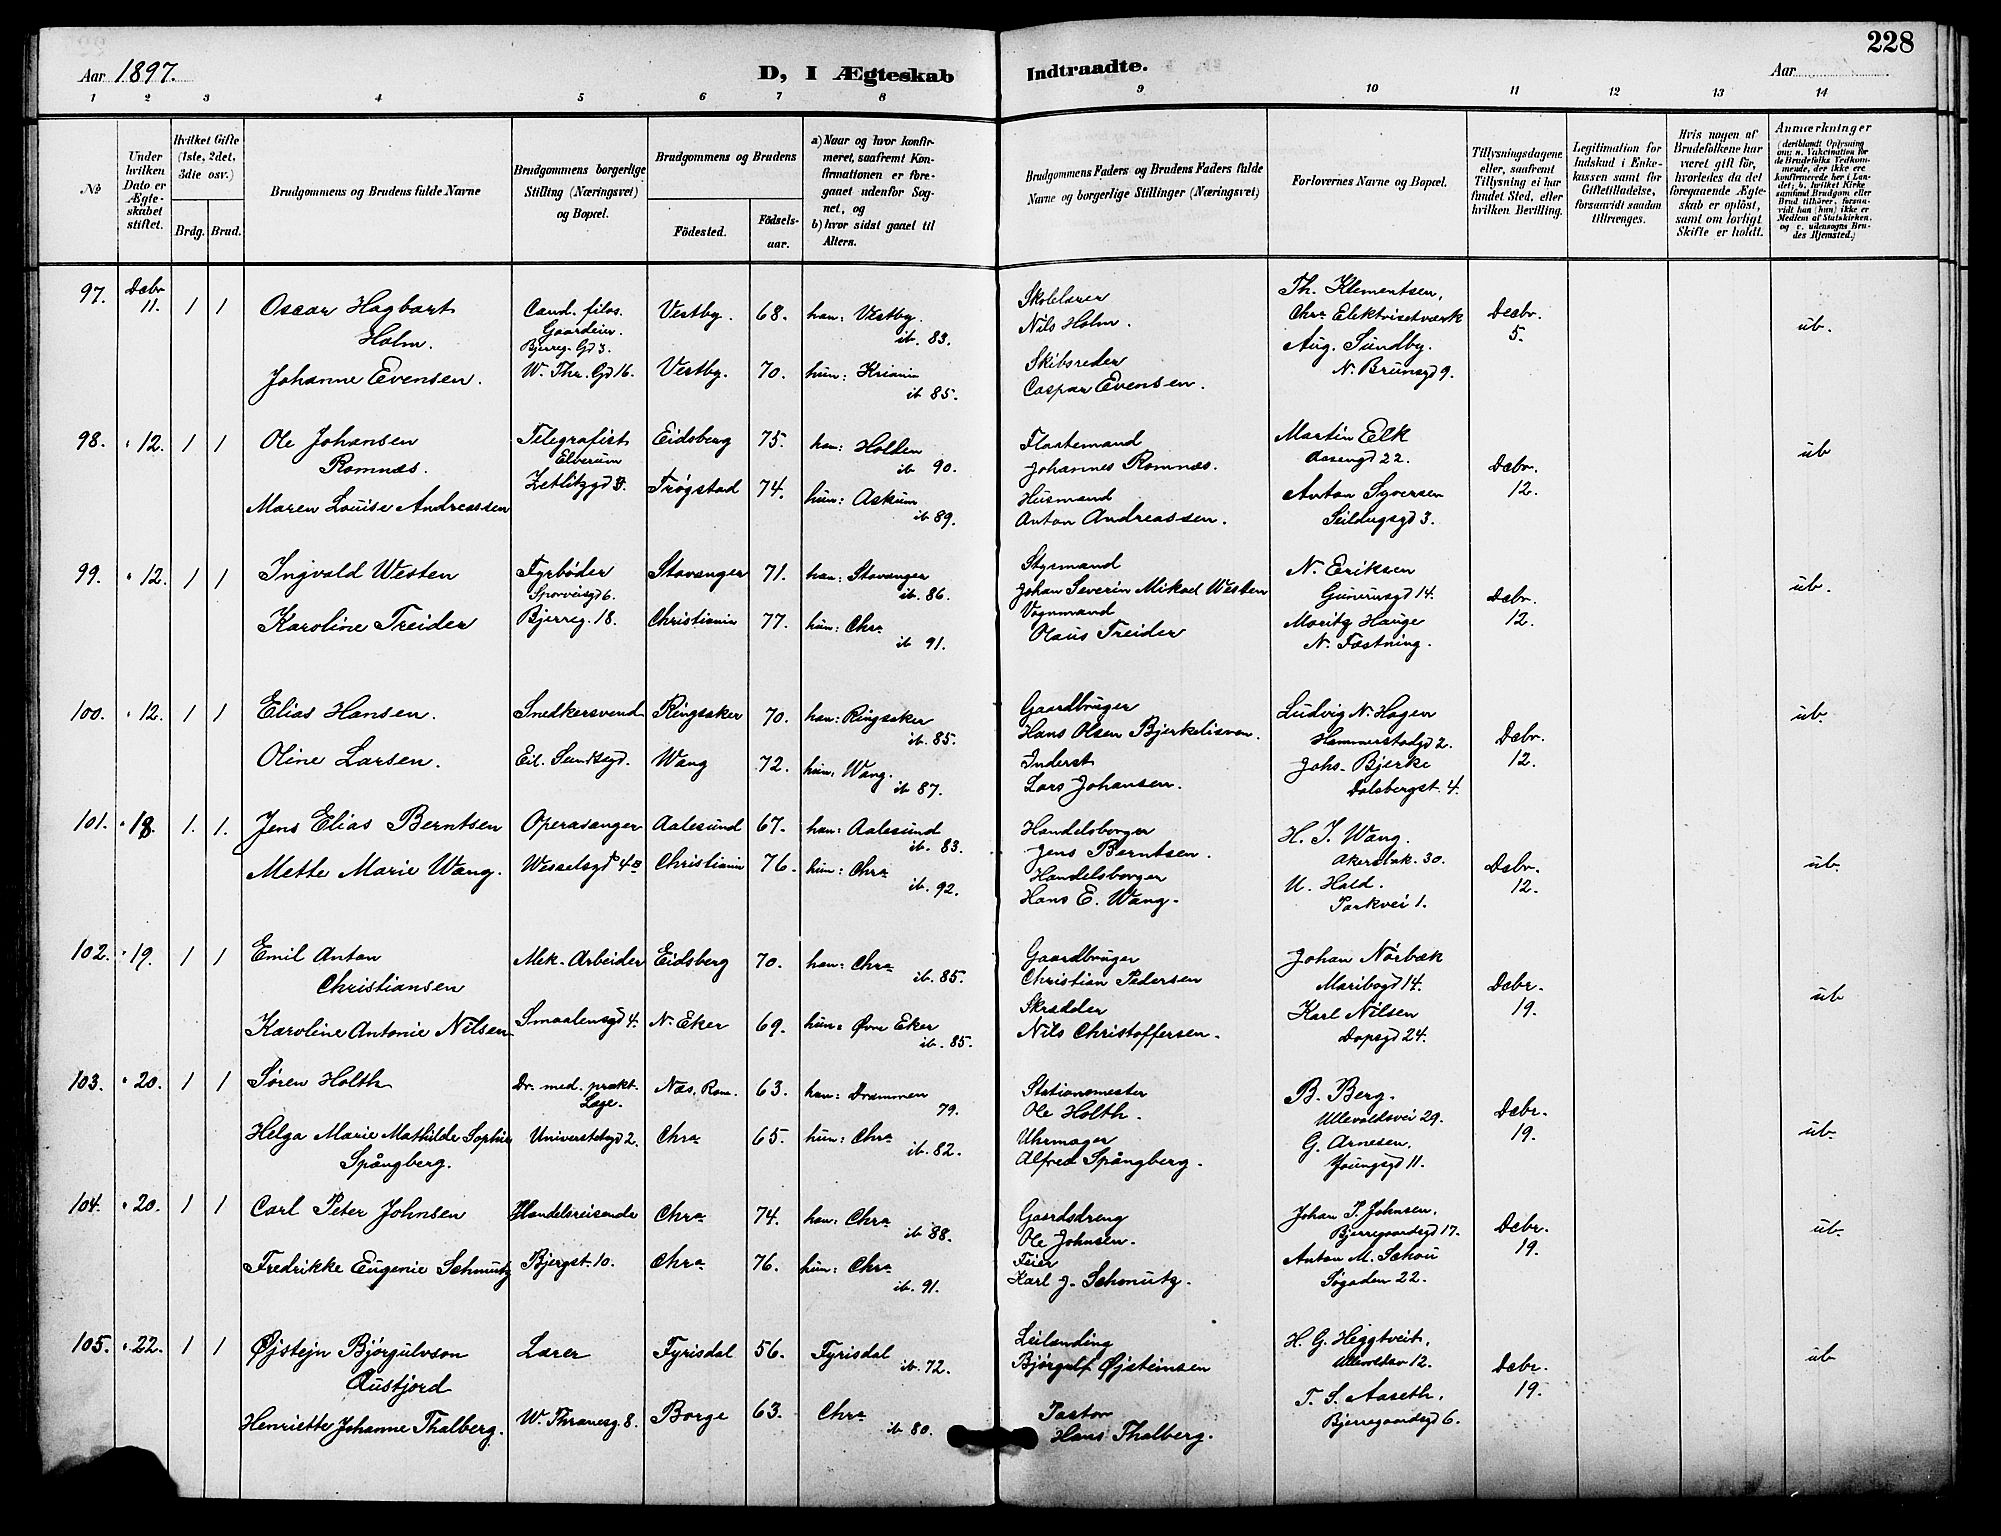 228
Aar 1897.
D, I Ægteskab Indtraadte.
Aar
1 2 3 4 5 6 7 8 9 10 11 12 13 14
No
Under hvilken Dato er Ægteskabet stiftet.
Hvilket Gifte (1ste, 2det, 3die osv.)
Brdg. Brud.
Brudgommens og Brudens fulde Navne
Brudgommens borgerlige Stilling (Næringsvei) og Bopæl.
Brudgommens og Brudens
Födested. Födselsaar.
a) Naar og hvor konfirmeret, saafremt Konfirmationen er foregaaet udenfor Sognet, og
b) hvor sidst gaaet til Alters.
Brudgommens Faders og Brudens Faders fulde Navne og borgerlige Stillinger (Næringsvei)
Forlovernes Navne og Bopæl.
Tillysningsdagene eller, saafremt Tillysning ei har fundet Sted, efter hvilken Bevilling.
Legitimation for Indskud i Enkekassen samt for Giftetilladelse, forsaavidt saadan tiltrænges.
Hvis nogen af Brudefolkene har været gift för, hvorledes da det foregaaende Ægteskab er oplöst, samt om lovligt Skifte er holdt.
Anmærkninger (deriblandt Oplysning om: a. Vakcination for de Brudefolks Vedkommende, der ikke ere konfirmerede her i Landet; b. hvilket Kirkesamfund Brudgom eller Brud tilhörer, forsaavidt han (hun) ikke er Medlem af Statskirken, og c. udensogns Brudes Hjemsted.)
97. Decbr 11. 1 1 Oscar Hagbart Holm. Cand. filos. Gaardeier Bjerreg. Gd 3. Vestby. 68. han: Vestby. ib. 83. Skolelærer Nils Holm. Th. Klementsen, Chra Elektrisetværk Decbr. 5. ub.
Johanne Evensen. W. Thr. Gd 16. Vestby. 70. hun: Kriania ib 85. Skibsreder Caspar Evensen. Aug. Sundby. N. Brunsgd 9.
98. " 12. 1 1 Ole Johansen Romnæs. Telegrafist Elverum Eidsberg 75. han: Holden ib 90. Flostemand Johannes Romnæs. Martin Elk Aasengd 22. Decbr. 12. ub
Maren Louise Andreassen Zetlitzgd 3. Trøgstad 74. hun: Askim ib 89. Husmand Anton Andreassen. Anton Syversen Seildugsgd 3.
99. " 12. 1 1 Ingvald Westen Fyrbøder Sporveisgd 6. Stavanger 71. han: Stavanger ib. 86. Styrmand Johan Severin Mikael Westen N. Eriksen Gunerusgd 14. Decbr. 12. ub.
Karoline Treider Bjerreg. 18. Christiania 77. hun: Chra ib 91. Vognmand Olaus Treider Moritz Hauge N. Fæstning.
100. " 12. 1 1 Elias Hansen. Snedkersvend Ringsaker 70. han: Ringsaker ib. 85. Gaardbruger Hans Olsen Bjerkelisven. Ludvig N. Hagen Hammerstadgd 2. Decbr. 12. ub.
Oline Larsen. Eil. Sundtsgd. Wang 72. hun: Wang. ib 87. Inderst Lars Johansen. Johs. Bjerke Dalsbergst. 4.
101. " 18. 1. 1. Jens Elias Berntsen Operasanger Aalesund 67. han: Aalesund ib. 83. Handelsborger Jens Berntsen. H. I. Wang. Akersbak. 30. Decbr. 12. ub
Mette Marie Wang. Wesselsgd 4 Christiania 76. hun: Chra ib 92. Handelsborger Hans E. Wang. U. Hald. Parkvei 1.
102. " 19. 1 1 Emil Anton Christiansen Mek. Arbeider Eidsberg 70. han: Chra ib. 85. Gaardbruger Christian Pedersen Johan Nørbæk Maribogd 14. Decbr. 19. ub
Karoline Antonie Nilsen Smaalensgd 4. N. Eker 69. hun: Øvre Eker ib. 85. Skrædder Nils Christoffersen. Karl Nilsen Dopsgd 24.
103. " 20. 1 1 Søren Holth Dr. med. prakt. Læge. Næs. Rom. 63. han: Drammen 79. Stationsmester Ole Holth. B. Berg. Ullevoldsvei 29. Decbr. 19. ub.
Helga Marie Mathilde Sophie Spångberg. Universitetsgd 2. Chra 65. hun: Chra ib. 82. Uhrmager Alfred Spångberg. G. Arnesen. Youngsgd 11.
104. " 20. 1 1 Carl Peter Johnsen Handelsreisende Chra 74. han: Chra ib 88. Gaardsdreng Ole Johnsen. Johan P. Johnsen. Bjerregaardsgd 17. Decbr. 19. ub.
Fredrikke Eugenie Schmutz Bjergst. 10. Chra 76. hun: Chra ib 91. Feier Karl J. Schmutz. Anton M. Schou Søgaden 22.
105. " 22. 1 1 Øjstejn Bjørgulvson Austjord Lærer Fyrisdal 56. Fyrisdal ib 72. Leilænding Bjørgulf Øjsteinsen H. G. Heggtveit. Ullevoldsv 12. Decbr. 19. ub
Henriette Johanne Thalberg. W. Thranesg. 8. Borge 63. Chra ib 80. Pastor Hans Thalberg. T. S. Aaseth. Bjerregaardsgd 6.